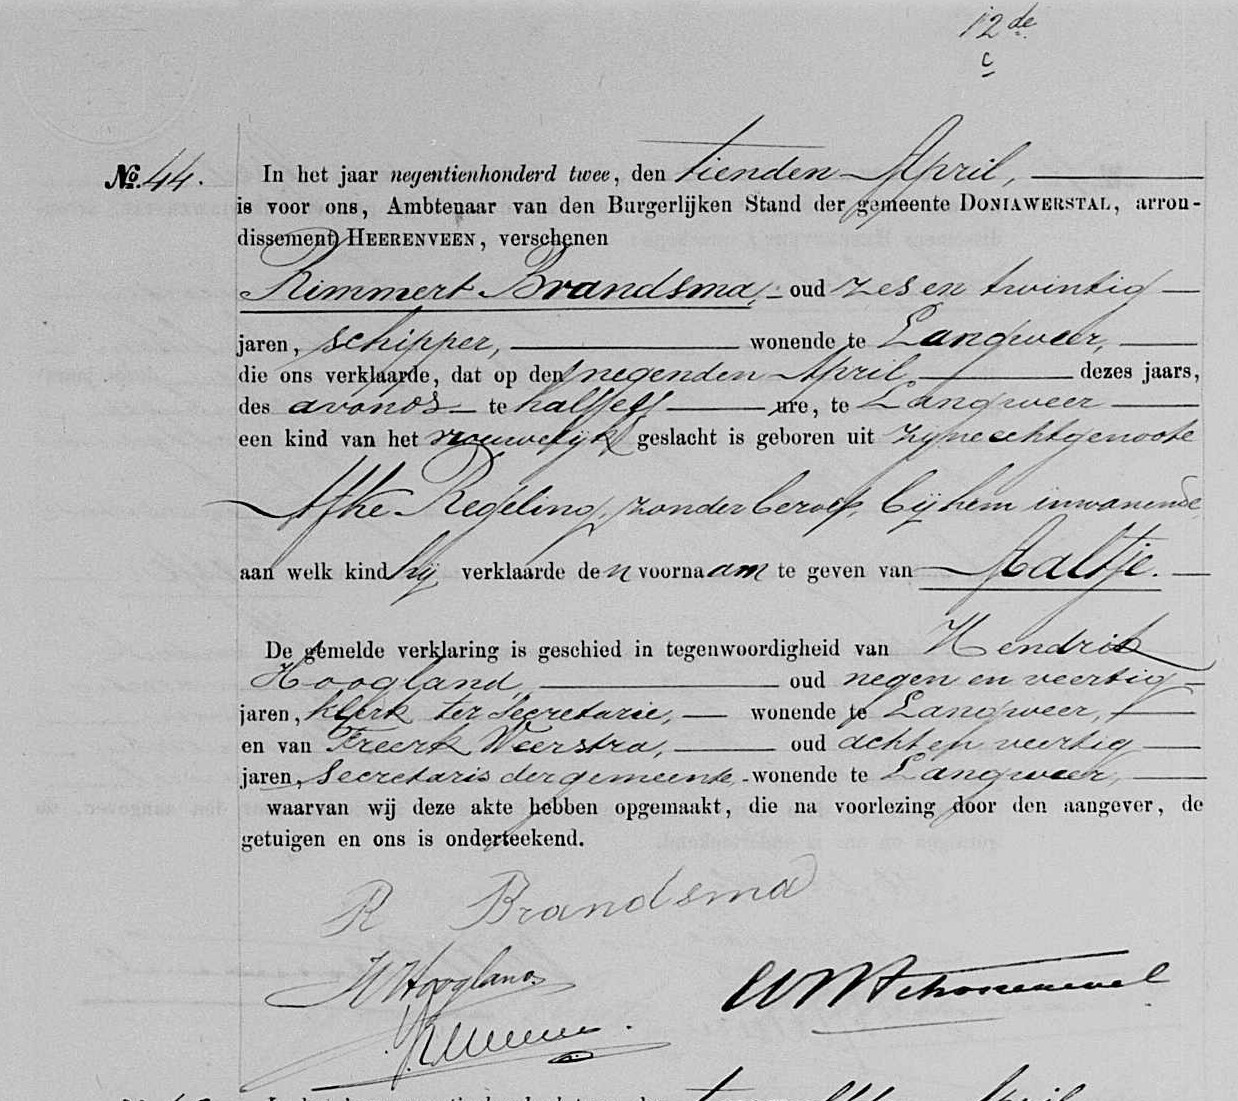 12de
c
No. 44. In het jaar negentienhonderd twee, den tienden April,
is voor ons, Ambtenaar van den Burgerlijken Stand der gemeente DONIAWERSTAL, arron-
dissement HEERENVEEN, verschenen
Rimmert Brandsma, oud zes en twintig
jaren, schipper, wonende te Langweer,
die ons verklaarde, dat op den negenden April dezes jaars,
des avonds te half elf ure, te Langweer
een kind van het vrouwelijk geslacht is geboren uit zijne echtgenoote
Afke Regeling, zonder beroep, bij hem inwonende,
aan welk kind hij verklaarde den voornaam te geven van Aaltje.
De gemelde verklaring is geschied in tegenwoordigheid van Hendrik
Hoogland, oud negen en veertig
jaren, klerk ter Secretarie, wonende te Langweer,
en van Freerk Weerstra, oud acht en veertig
jaren, Secretaris der gemeente, wonende te Langweer,
waarvan wij deze akte hebben opgemaakt, die na voorlezing door den aangever, de
getuigen en ons is onderteekend.
R Brandsma
H Hoogland